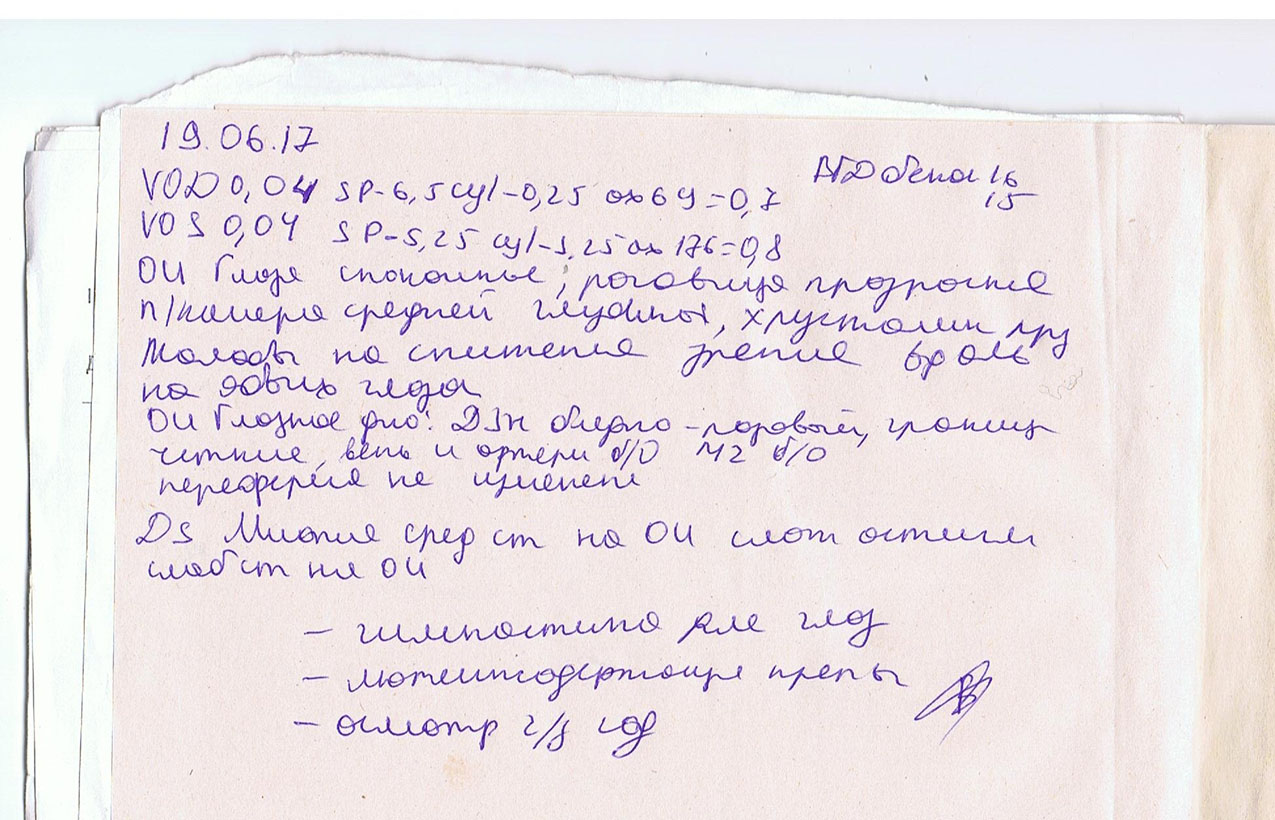 19.06.17
VOD 0,04 sp-6,5 cyl-0,25 ax 69=0,7
ВГД бека 16
15
VOS 0,04 sp-5,25 cyl-1,25 ax 176=0,8
ОИ Глаза спокойные, роговица прозрачная
п/камера средней глубины, хрусталик прз
Жалобы на снижения зрение вдаль
на обоих глаза
ОИ Глазное дно: ДЗН бледно-розовый, границы
четкие, вены и артери б/о МZ б/о
переферия не изменена
DS Миопия сред ст на ОИ слот астигм
слаб ст на ОИ
- гимнастика для глаз
- лютеинсодержащие препы
- осмотр ч/з год